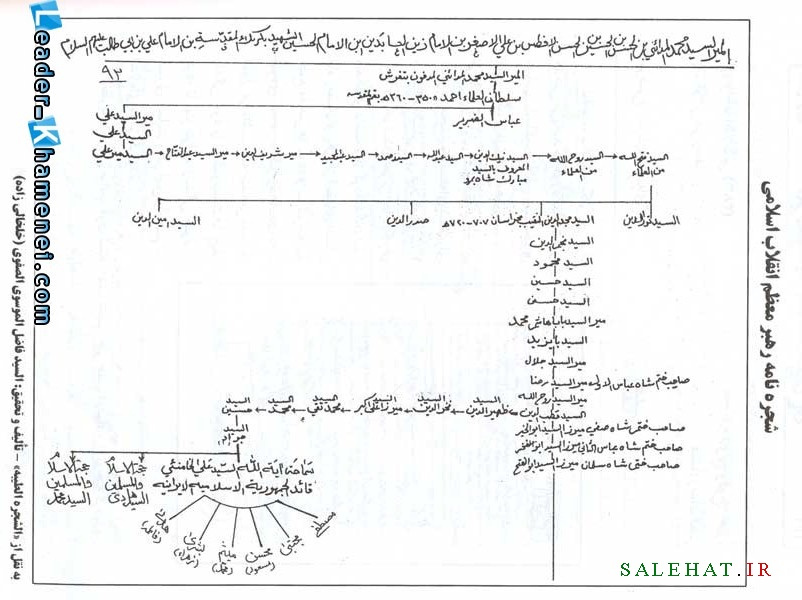 المیر السید محمد المدائنی بن الحسن بن الحسین بن الحسن الافطس بن علی الاصغر بن الامام زین العابدین ابن الامام الحسین الشهید بکربلاء المقدسة بن الامام علی بن ابی طالب علیهم السلام
٩٣
المیر السید محمد المدائنی المدفون بتفرش
سلطان العلماء احمد
عباس الضریر
میر السید علی
السید علی
السید فتح الله من العلماء
السید روح الله من العلماء
السید فلک الدین المعروف بالسید مبارک شاه
السید عبدالله
السید صمد
السید عبدالمجید
میر شریف الدین
میر السید عبدالفتاح
السید میر علی
السید نورالدین
السید مجدالدین النقیب بخراسان ٧٠٧-٧٢٠ ه
صدرالدین
السید امین الدین
السید فخرالدین
السید محمود
السید حسین
السید حسن
میر السید بابا هاشم محمد
السید بایزید
میر السید جلال
صاحب ختم شاه عباس الاول
میر السید رضا
میر السید روح الله
السید قطب الدین
ظهیر الدین
السید فخرالدین
السید میرزا علی اکبر
السید محمد تقی
السید محمد
السید حسین
صاحب ختم شاه صفی میرزا السید ابوالخیر
السید جواد
صاحب ختم شاه عباس الثانی میرزا السید ابوالمفخر
صاحب ختم شاه سلطان میرزا السید ابوالفتح
سماحة آیة الله السید علی الخامنئی
قائد الجمهوریة الاسلامیة الایرانیة
حجة الاسلام والمسلمین السید هادی
حجة الاسلام والمسلمین السید محمد
مصطفی
مجتبی
محسن (مسعود)
میثم
بشری (زهراء)
هدی (فاطمة)
شجره نامه رهبر معظم انقلاب اسلامی
به نقل از «الشجره الطیبه» - تألیف و تحقیق: السید فاضل الموسوی الصفوی (خلخالی زاده)
Leader-Khamenei.com
SALEHAT.IR